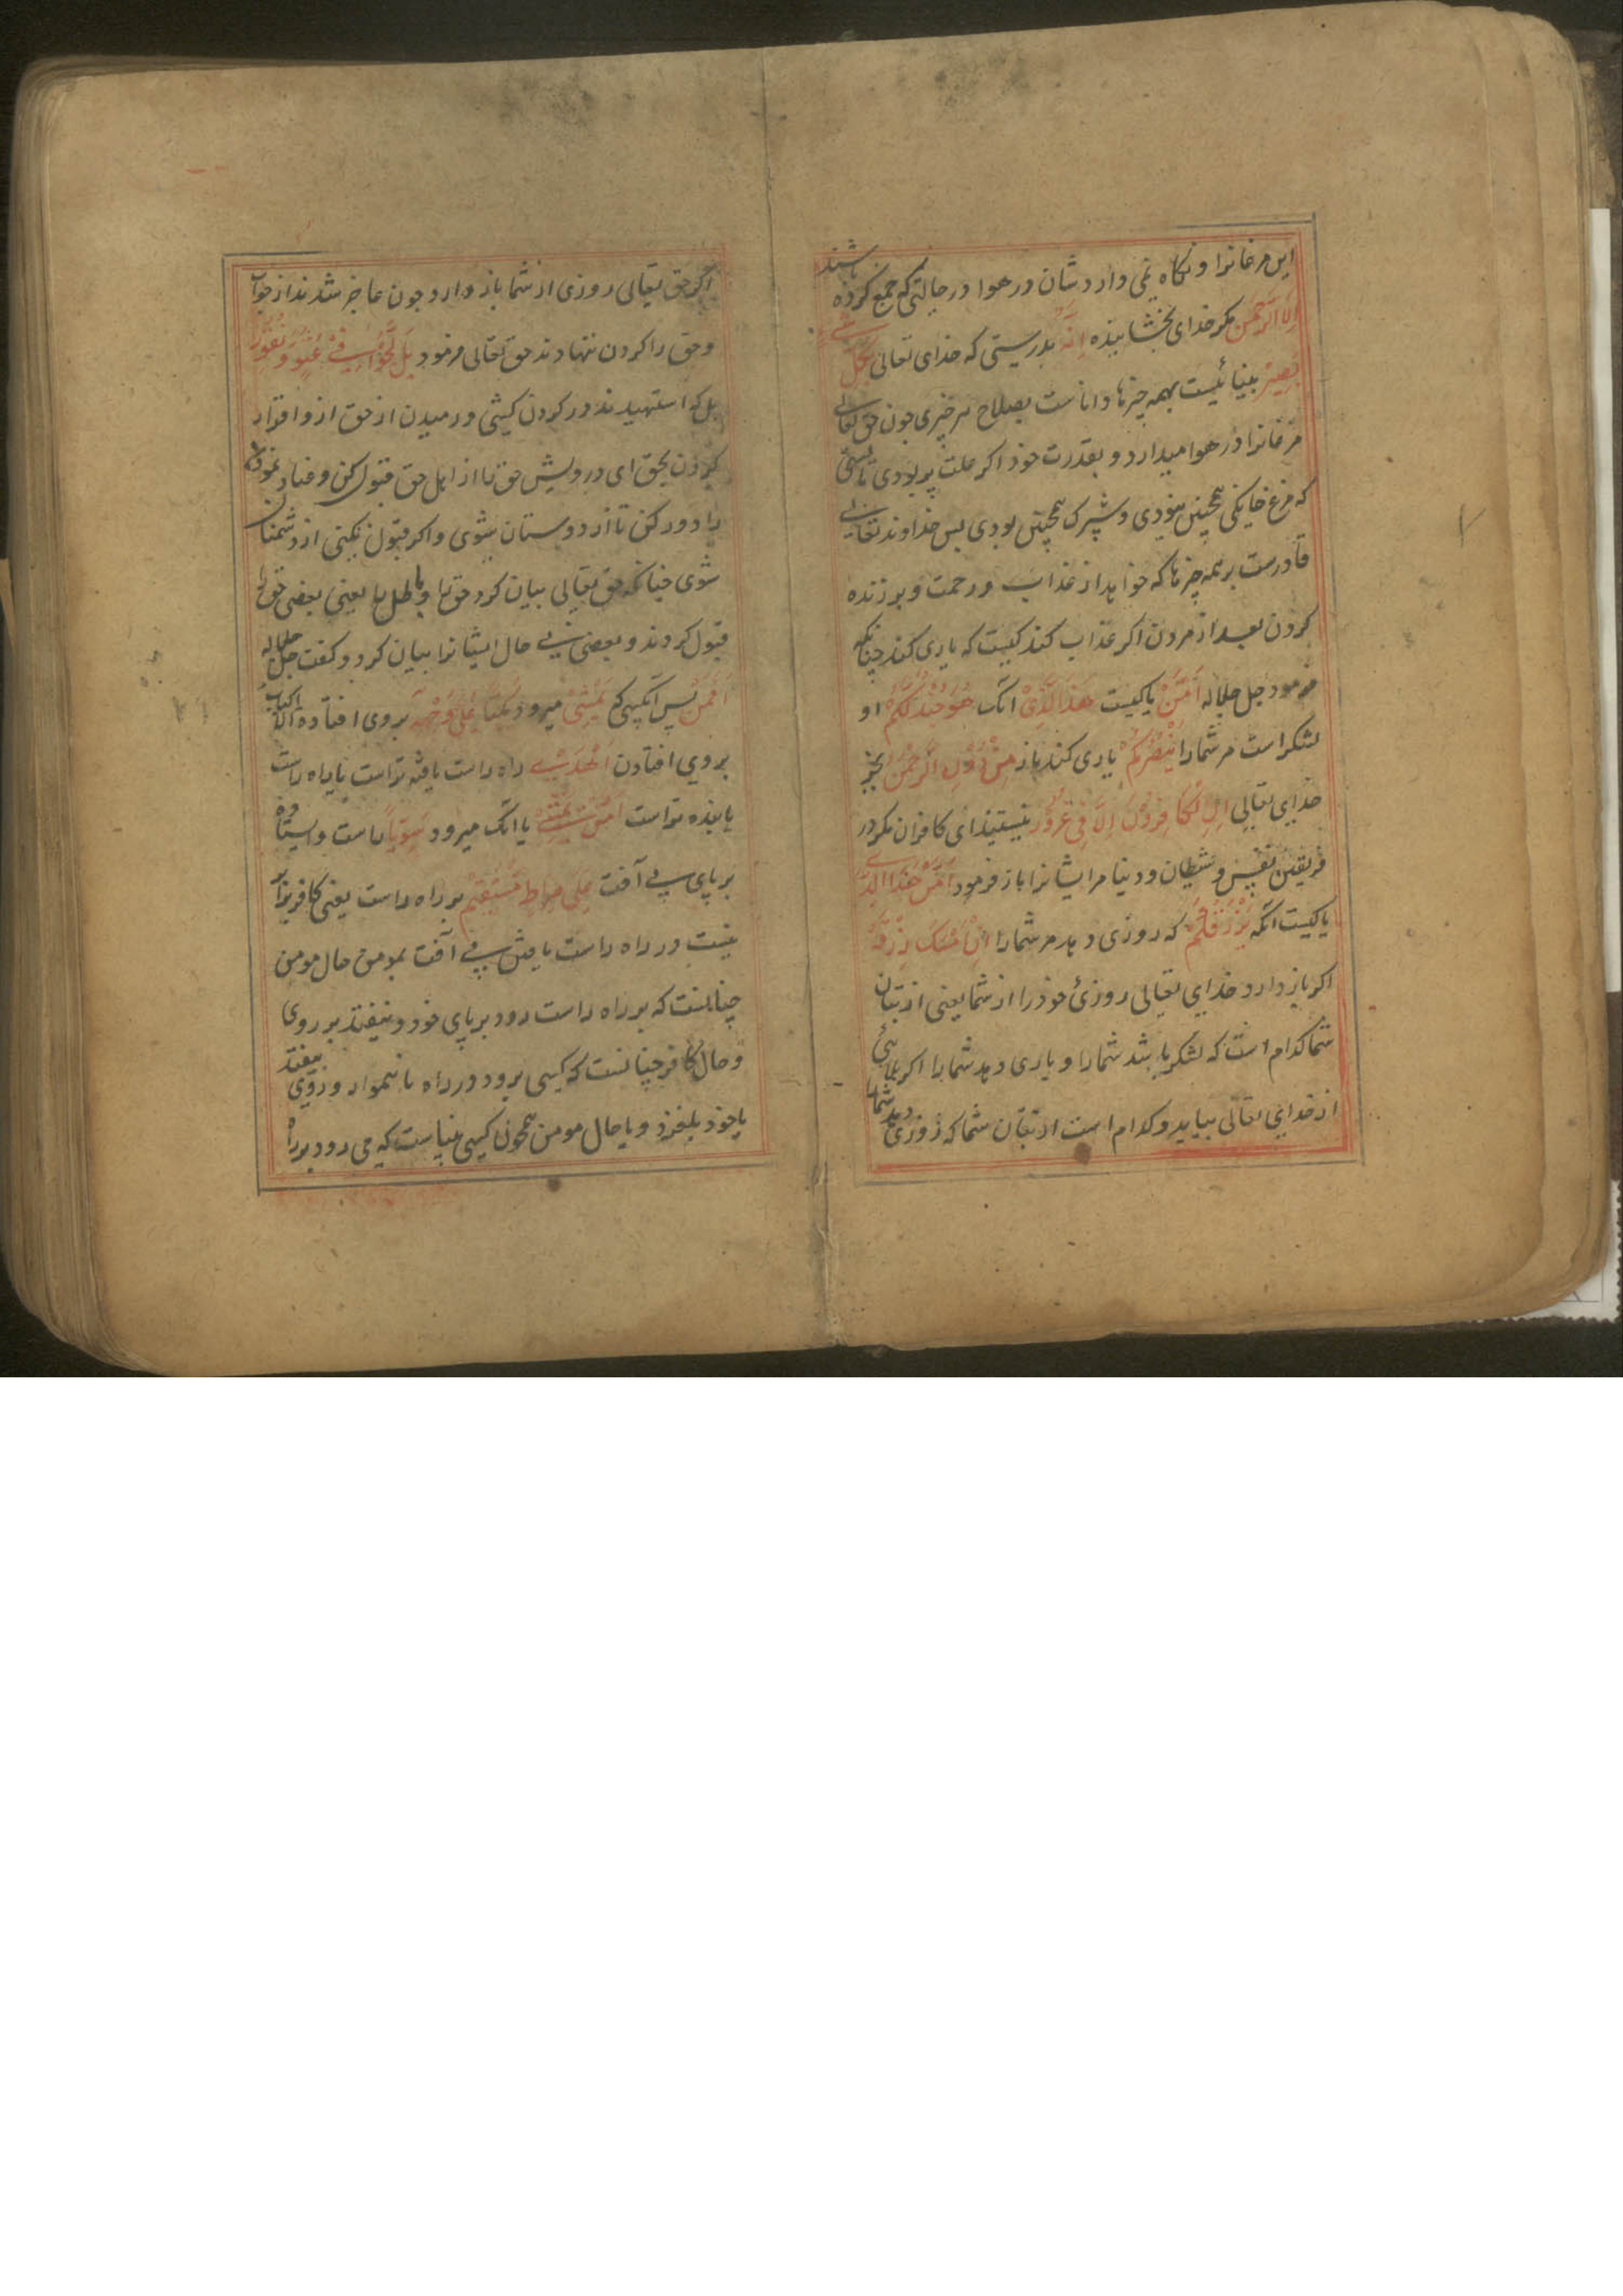 این مرغانرا و نکاه نمی دارد شان در هوا در حالتی که جمع کرده باشند
اِلَّا الرَّحْمٰنُ مکر خدای بخشاینده اِنَّهُ بدرستی که خدای تعالی بِکُلِّ شَیْءٍ
بَصِیْرٌ بینائیست بهمه چیزها و داناست بصلاح هر چیزی چون حق تعالی
مرغانرا در هوا میدارد و بقدرت خود اکر علت پر بودی بایستی
که مرغ خانکی همچنین بودی و شپرک همچنین بودی پس خداوند تعالی
قادرست بر همه چیزها که خواهد از عذاب و رحمت و بر زنده
کردن بعد از مردن اکر عذاب کند کیست که یاری کند چنانکه
فرمود جل جلاله اَمَّنْ یا کیست هٰذَا الَّذِیْ انک هُوَ جُنْدٌ لَّکُمْ او
لشکر است مر شمارا یَنْصُرُکُمْ یاری کند باز مِنْ دُوْنِ الرَّحْمٰنِ بجز
خدایی تعالی اِنِ الْکَافِرُوْنَ اِلَّا فِیْ غُرُوْرٍ نیستیند ای کافران مکر در
فریفتن نفس و شیطان و دنیا مر ایشانرا باز فرمود اَمَّنْ هٰذَا الَّذِیْ
یا کیست انکه یَرْزُقُکُمْ که روزی دهد مر شمارا اِنْ اَمْسَکَ رِزْقَهُ
اکر باز دارد خدایی تعالی روزئ خود را از شما یعنی از بتان
شما کدام است که لشکر باشد شمارا و یاری دهد شمارا اکر بلائی
از خدایی تعالی بیاید و کدام است از بتان شما که روزی دهد شمارا
اکر حق تعالی روزی از شما باز دارد چون عاجز شدند از جواب
و حق را کردن ننهادند حق تعالی فرمود بَلْ لَّجُّوْا فِیْ عُتُوٍّ وَّ نُفُوْرٍ
بل که استهیدند در کردن کیشی و رمیدن از حق از و اقرار
کردن بحق ای درویش حق را از اهل حق قبول کن و عناد
را دور کن تا از دوستان شوی و اکر قبول نکنی از دشمنان
شوی چنانکه حق تعالی بیان کرد حق را و باطل را یعنی بعضی حق را
قبول کردند و بعضی نی حال ایشانرا بیان کرد و کفت جل جلاله
اَفَمَنْ پس آنکسی که یَمْشِیْ میرود مُکِبًّا عَلٰی وَجْهِهٖ بروی افتاده الاکباب
بروی افتادن اَهْدٰی راه راست یافته تر است یا براه راست
یابنده تر است اَمَّنْ یَّمْشِیْ یا انک میرود سَوِیًّا راست و ایستاده
بر پای بی آفت عَلٰی صِرَاطٍ مُّسْتَقِیْمٍ بر راه راست یعنی کافر برابر
نیست در راه راست یافتن بی آفت بمومن حال مومن
چنانست که بر راه راست رود بر پای خود و نیفتد بر روی
و حال کافر چنانست که کسی برود در راه ناهموار و بر روی بیفتد
یا خود بلغزد و یا حال مومن همچون کسی بیناست که می رود براه